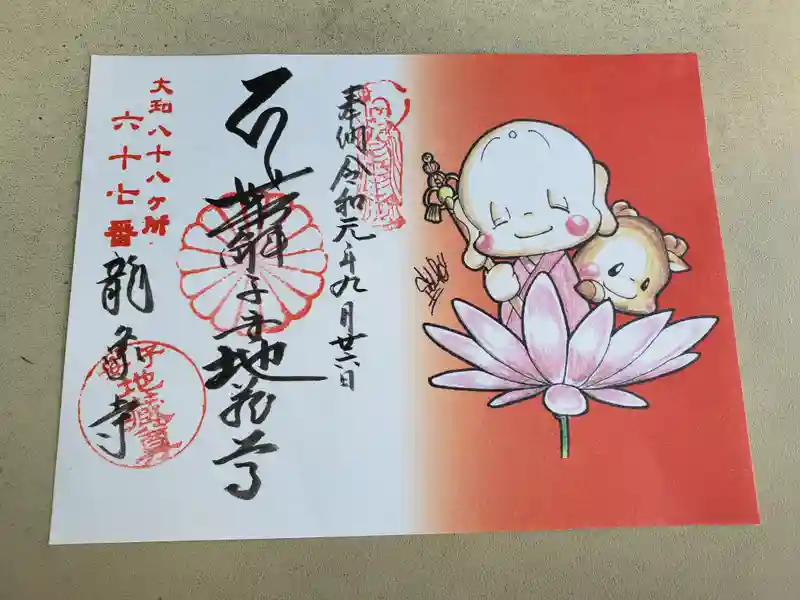 奉納令和元年九月廿六日
帯解子安地蔵尊
大和八十八ヶ所
六十七番
龍象寺